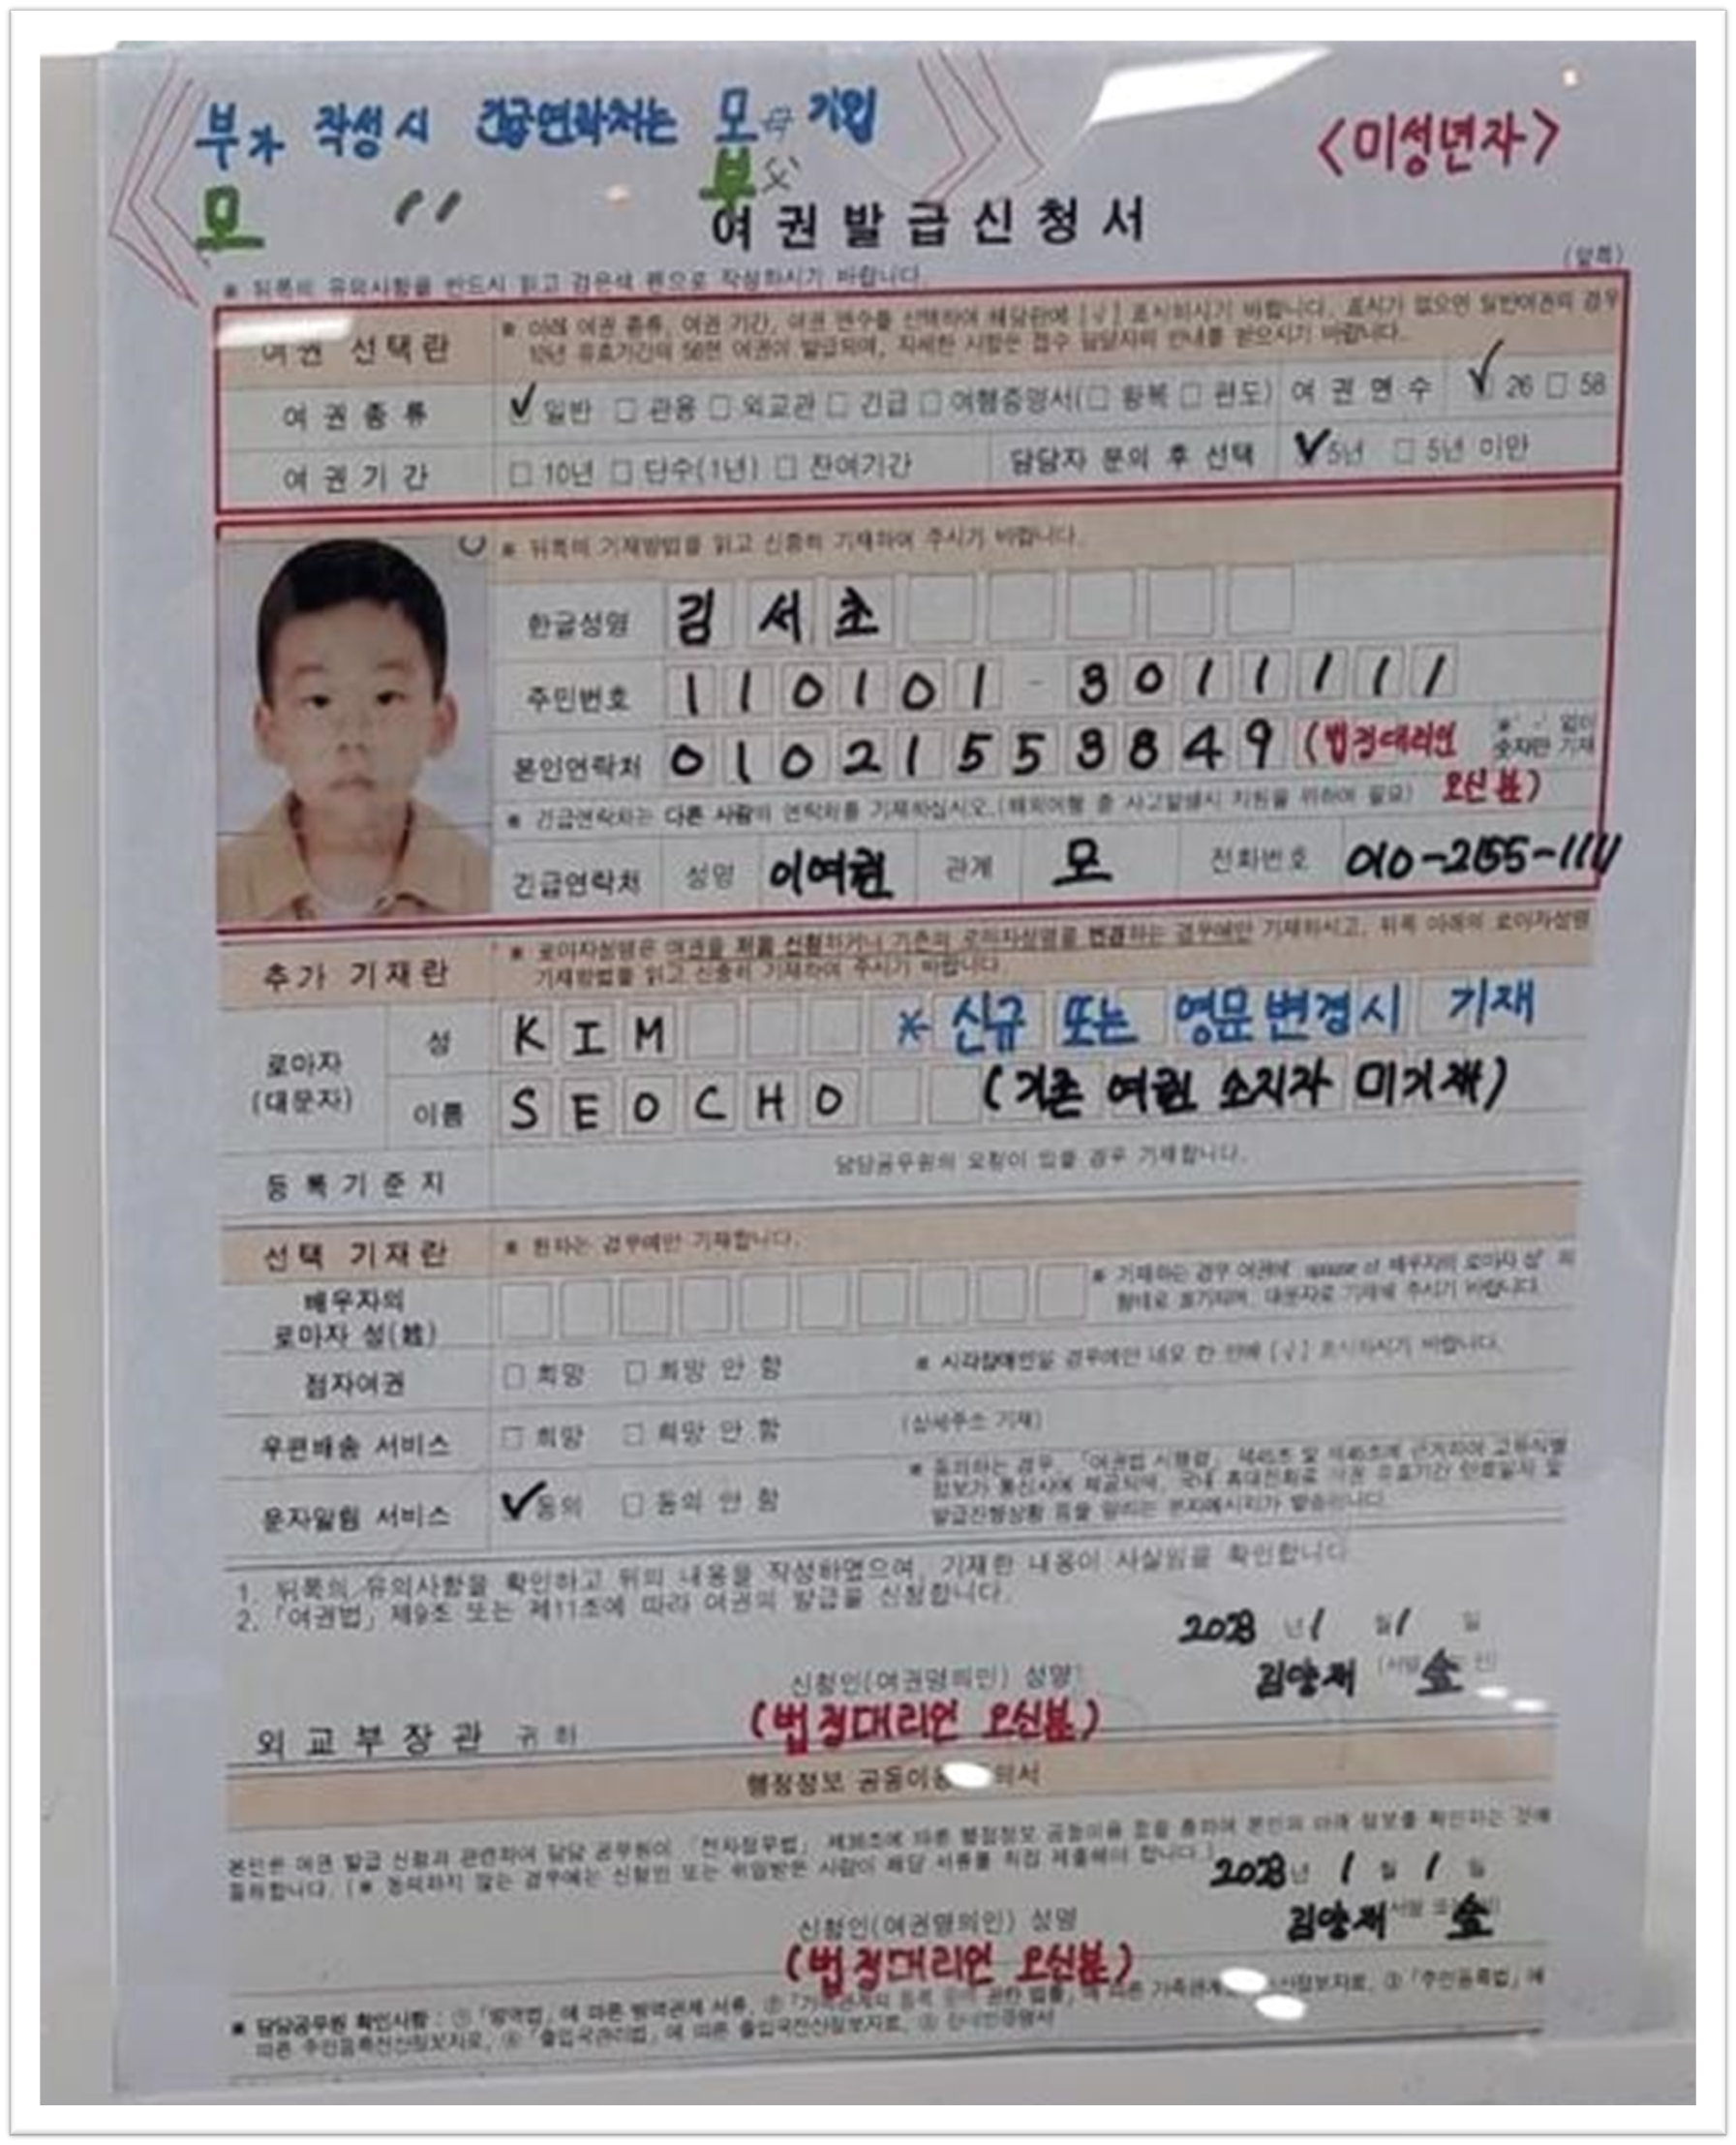 부가 작성시 긴급연락처는 모 母 기입
모 〃 부 父
<미성년자>
여권발급신청서
(앞쪽)
※ 뒤쪽의 유의사항을 반드시 읽고 검은색 펜으로 작성하시기 바랍니다.
여권 선택란
※ 아래 여권 종류, 여권 기간, 여권 면수를 선택하여 해당란에 [√] 표시하시기 바랍니다. 표시가 없으면 일반여권의 경우
10년 유효기간의 58면 여권이 발급되며, 자세한 사항은 접수 담당자의 안내를 받으시기 바랍니다.
여권종류 ✓ 일반 □ 관용 □ 외교관 □ 긴급 □ 여행증명서(□ 왕복 □ 편도) 여권면수 ✓ 26 □ 58
여권기간 □ 10년 □ 단수(1년) □ 잔여기간 담당자 문의 후 선택 ✓ 5년 □ 5년 미만
※ 뒤쪽의 기재방법을 읽고 신중히 기재하여 주시기 바랍니다.
한글성명 김서초
주민번호 110101-3011111
본인연락처 01021553849 (법정대리인 오신분)
※ '-' 없이 숫자만 기재
※ 긴급연락처는 다른 사람의 연락처를 기재하십시오.(해외여행 중 사고발생시 지원을 위하여 필요)
긴급연락처 성명 이여권 관계 모 전화번호 010-2155-1111
추가 기재란
※ 로마자성명은 여권을 처음 신청하거나 기존의 로마자성명을 변경하는 경우에만 기재하시고, 뒤쪽 아래의 로마자성명
기재방법을 읽고 신중히 기재하여 주시기 바랍니다.
로마자
(대문자)
성 KIM
* 신규 또는 영문변경시 기재
이름 SEOCHO
(기존 여권 소지자 미기재)
등록기준지 담당공무원의 요청이 있을 경우 기재합니다.
선택 기재란 ※ 원하는 경우에만 기재합니다.
배우자의
로마자 성(姓)
※ 기재하는 경우 여권에 'spouse of 배우자의 로마자 성' 의
형태로 표기되며, 대문자로 기재해 주시기 바랍니다.
점자여권 □ 희망 □ 희망 안 함 ※ 시각장애인일 경우에만 네모 칸 안에 [√] 표시하시기 바랍니다.
우편배송 서비스 □ 희망 □ 희망 안 함 (상세주소 기재)
문자알림 서비스 ✓ 동의 □ 동의 안 함
※ 동의하는 경우, 「여권법 시행령」 제45조 및 제46조에 근거하여 고유식별
정보가 통신사에 제공되며, 국내 휴대전화로 여권 유효기간 만료일자 및
발급진행상황 등을 알리는 문자메시지가 발송됩니다.
1. 뒤쪽의 유의사항을 확인하고 위의 내용을 작성하였으며, 기재한 내용이 사실임을 확인합니다.
2. 「여권법」 제9조 또는 제11조에 따라 여권의 발급을 신청합니다.
2023 년 1 월 1 일
신청인(여권명의인) 성명 김양재
(법정대리인 오신분)
외교부장관 귀하
행정정보 공동이용 의서
본인은 여권 발급 신청과 관련하여 담당 공무원이 「전자정부법」 제36조에 따른 행정정보 공동이용 등을 통하여 본인의 아래 정보를 확인하는 것에
동의합니다. (※ 동의하지 않는 경우에는 신청인 또는 위임받은 사람이 해당 서류를 직접 제출해야 합니다.)
2023년 1 월 1 일
신청인(여권명의인) 성명 김양재
(법정대리인 오신분)
※ 담당공무원 확인사항 : ①「병역법」에 따른 병역관계 서류, ②「가족관계의 등록 등에 관한 법률」에 따른 가족관계 산정보자료, ③「주민등록법」에
따른 주민등록전산정보자료, ④「출입국관리법」에 따른 출입국전산정보자료, ⑤